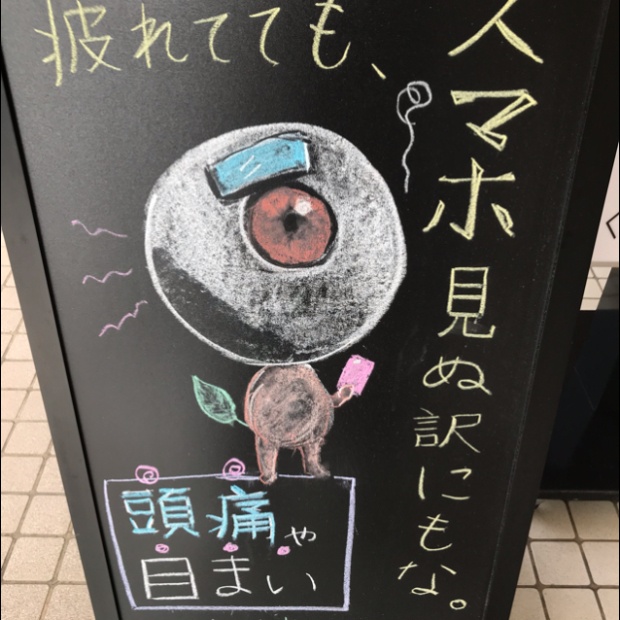 疲れてても、
スマホ見ぬ訳にもな。
頭痛や
目まい